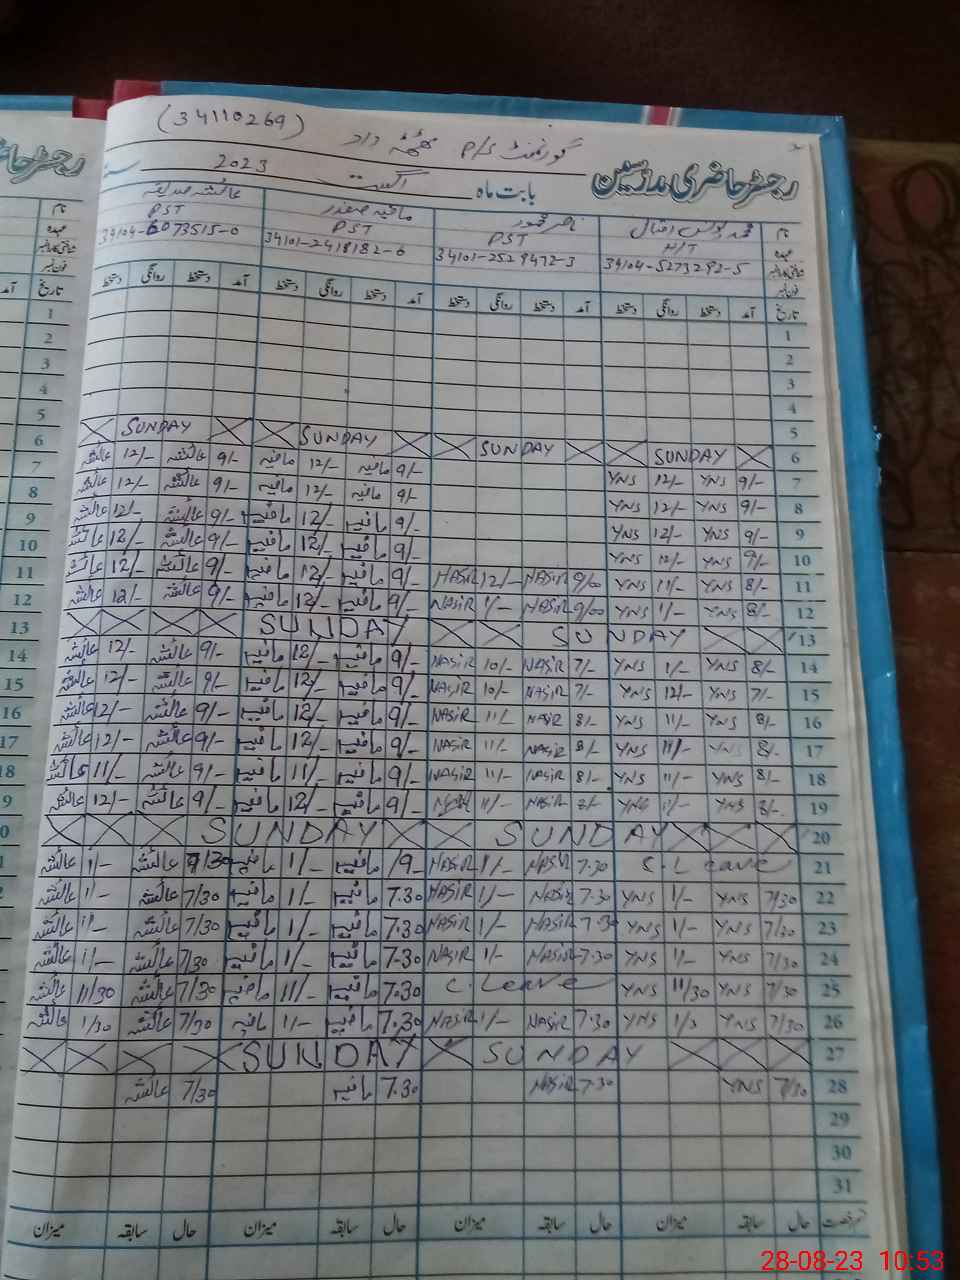 (34110269) گورنمنٹ P/S بھٹہ داد
رجسٹر حاضری مدرسین بابت ماہ اگست 2023 سنہ
نام محمد یونس اقبال ناصر محمود مافیہ صفدر عائشہ صدیقہ
عہدہ H/T PST PST PST
34104-5273292-5 34101-2529472-3 34101-2418182-6 34104-6073515-0
فون نمبر
تاریخ آمد دستخط روانگی دستخط آمد دستخط روانگی دستخط آمد دستخط روانگی دستخط آمد دستخط روانگی دستخط
1
2
3
4
5
6 SUNDAY SUNDAY SUNDAY SUNDAY
7 9/- YNS 12/- YNS 9/- مافیہ 12/- مافیہ 9/- عائشہ 12/- عائشہ
8 9/- YNS 12/- YNS 9/- مافیہ 12/- مافیہ 9/- عائشہ 12/- عائشہ
9 9/- YNS 12/- YNS 9/- مافیہ 12/- مافیہ 9/- عائشہ 12/- عائشہ
10 9/- YNS 12/- YNS 9/- مافیہ 12/- مافیہ 9/- عائشہ 12/- عائشہ
11 8/- YNS 11/- YNS 9/00 NASIR 12/- NASIR 9/- مافیہ 12/- مافیہ 9/- عائشہ 12/- عائشہ
12 8/- YNS 1/- YNS 9/00 NASIR 1/- NASIR 9/- مافیہ 12/- مافیہ 9/- عائشہ 12/- عائشہ
13 SUNDAY SUNDAY
14 8/- YNS 1/- YNS 7/- NASIR 10/- NASIR 9/- مافیہ 12/- مافیہ 9/- عائشہ 12/- عائشہ
15 7/- YNS 12/- YNS 7/- NASIR 10/- NASIR 9/- مافیہ 12/- مافیہ 9/- عائشہ 12/- عائشہ
16 8/- YNS 11/- YNS 8/- NASIR 11/- NASIR 9/- مافیہ 12/- مافیہ 9/- عائشہ 12/- عائشہ
17 8/- YNS 11/- YNS 8/- NASIR 11/- NASIR 9/- مافیہ 12/- مافیہ 9/- عائشہ 12/- عائشہ
18 8/- YNS 11/- YNS 8/- NASIR 11/- NASIR 9/- مافیہ 11/- مافیہ 9/- عائشہ 11/- عائشہ
19 8/- YNS 11/- YNS 8/- NASIR 11/- NASIR 9/- مافیہ 12/- مافیہ 9/- عائشہ 12/- عائشہ
20 SUNDAY SUNDAY
21 C.Leave 7.30 NASIR 1/- NASIR /9 مافیہ 1/- مافیہ عائشہ 1/- عائشہ
22 7/30 YNS 1/- YNS 7.30 NASIR 1/- NASIR 7.30 مافیہ 1/- مافیہ 7/30 عائشہ 1/- عائشہ
23 7/30 YNS 1/- YNS 7.30 NASIR 1/- NASIR 7.30 مافیہ 1/- مافیہ 7/30 عائشہ 1/- عائشہ
24 7/30 YNS 1/- YNS 7.30 NASIR 1/- NASIR 7.30 مافیہ 1/- مافیہ 7/30 عائشہ 1/- عائشہ
25 7/30 YNS 11/30 YNS C.Leave 7.30 مافیہ 11/- مافیہ 7/30 عائشہ 11/30 عائشہ
26 7/30 YNS 1/3 YNS 7.30 NASIR 1/- NASIR 7.30 مافیہ 1/- مافیہ 7/30 عائشہ 1/30 عائشہ
27 SUNDAY SUNDAY
28 7/30 YNS 7.30 NASIR 7.30 مافیہ 7/30 عائشہ
29
30
31
حال سابقہ میزان حال سابقہ میزان حال سابقہ میزان حال سابقہ میزان
28-08-23 10:53